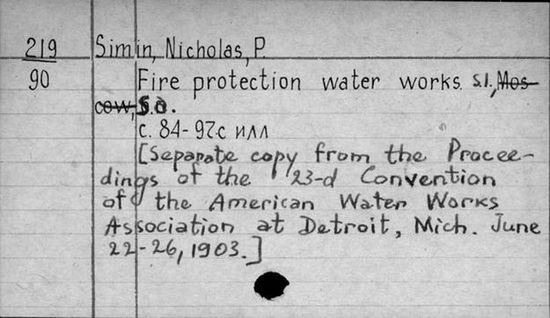 219 Simin, Nicholas, P.
90 Fire protection water works. s.l., Mos-
cow, S.a.
c. 84-97c илл
[Separate copy from the Procee-
dings of the 23-d Convention
of the American Water Works
Association at Detroit, Mich. June
22-26, 1903.]